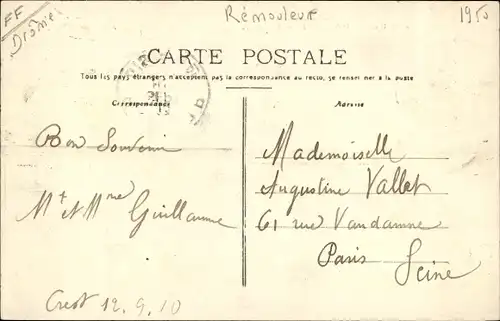 FF
Drôme
Rémouleur
1950
CARTE POSTALE
Tous les pays étrangers n'acceptent pas la correspondance au recto, se renseigner à la poste
Correspondance
Adresse
Bon Souvenir
Mt et Mme Guillaume
Crest 12.9.10
Mademoiselle
Augustine Vallet
61 rue Vandamne
Paris Seine